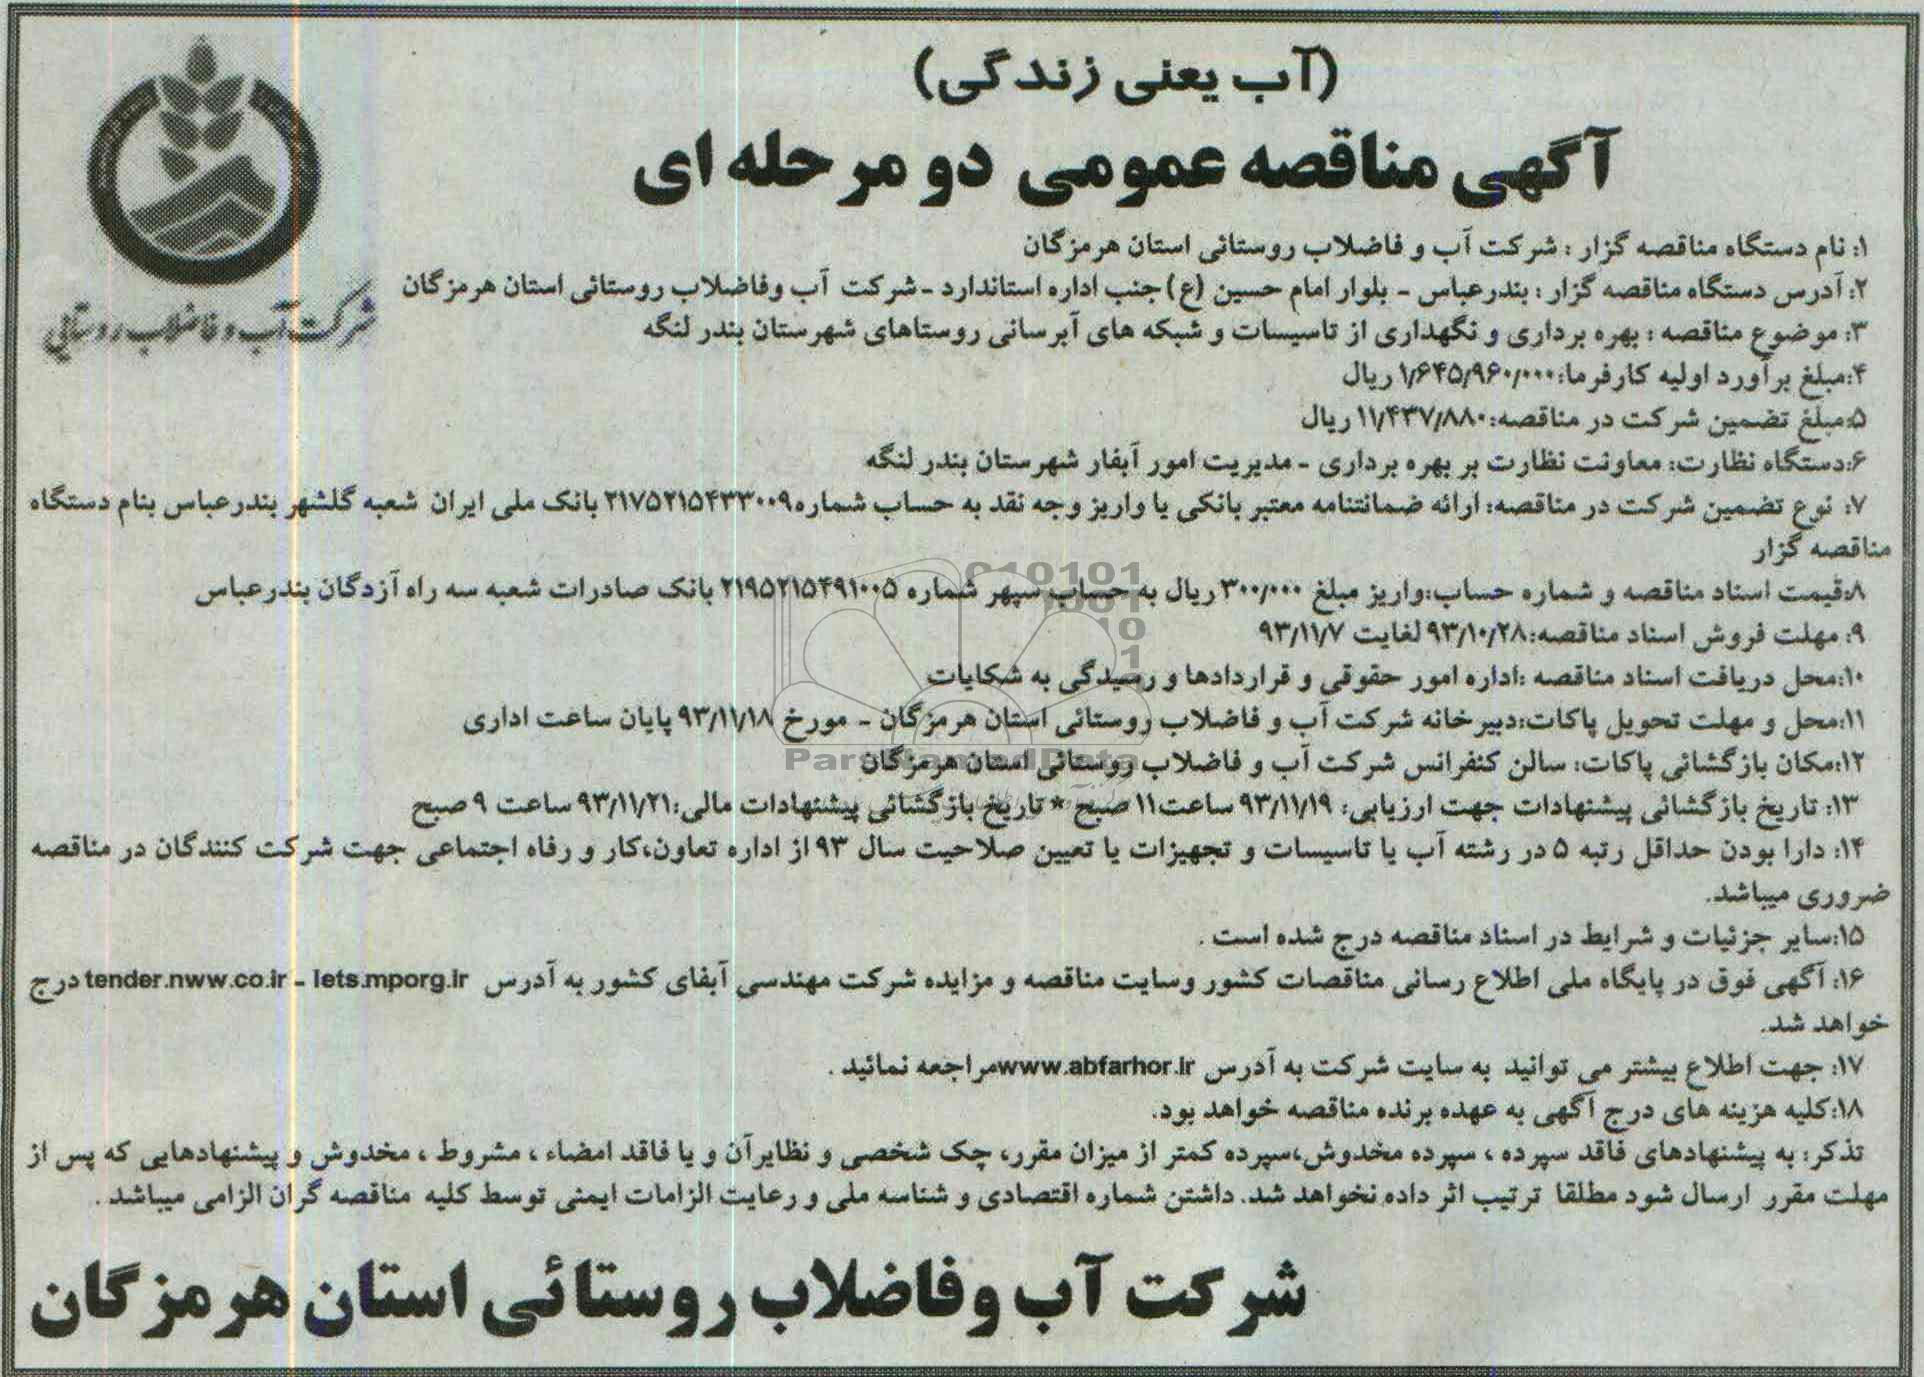 (آب یعنی زندگی)
آگهی مناقصه عمومی دو مرحله ای
شرکت آب و فاضلاب روستایی
۱: نام دستگاه مناقصه گزار : شرکت آب و فاضلاب روستائی استان هرمزگان
۲: آدرس دستگاه مناقصه گزار : بندرعباس - بلوار امام حسین (ع) جنب اداره استاندارد - شرکت آب وفاضلاب روستائی استان هرمزگان
۳: موضوع مناقصه : بهره برداری و نگهداری از تاسیسات و شبکه های آبرسانی روستاهای شهرستان بندر لنگه
۴:مبلغ برآورد اولیه کارفرما: ۱/۶۴۵/۹۶۰/۰۰۰ ریال
۵:مبلغ تضمین شرکت در مناقصه: ۱۱/۴۳۷/۸۸۰ ریال
۶:دستگاه نظارت: معاونت نظارت بر بهره برداری - مدیریت امور آبفار شهرستان بندر لنگه
۷: نوع تضمین شرکت در مناقصه: ارائه ضمانتنامه معتبر بانکی یا واریز وجه نقد به حساب شماره ۲۱۷۵۲۱۵۴۳۳۰۰۹ بانک ملی ایران شعبه گلشهر بندرعباس بنام دستگاه
مناقصه گزار
۸:قیمت اسناد مناقصه و شماره حساب:واریز مبلغ ۳۰۰/۰۰۰ ریال به حساب سپهر شماره ۲۱۹۵۲۱۵۴۹۱۰۰۵ بانک صادرات شعبه سه راه آزدگان بندرعباس
۹: مهلت فروش اسناد مناقصه: ۹۳/۱۰/۲۸ لغایت ۹۳/۱۱/۷
۱۰:محل دریافت اسناد مناقصه :اداره امور حقوقی و قراردادها و رسیدگی به شکایات
۱۱:محل و مهلت تحویل پاکات:دبیرخانه شرکت آب و فاضلاب روستائی استان هرمزگان - مورخ ۹۳/۱۱/۱۸ پایان ساعت اداری
۱۲:مکان بازگشائی پاکات: سالن کنفرانس شرکت آب و فاضلاب روستائی استان هرمزگان
۱۳: تاریخ بازگشائی پیشنهادات جهت ارزیابی: ۹۳/۱۱/۱۹ ساعت ۱۱ صبح * تاریخ بازگشائی پیشنهادات مالی: ۹۳/۱۱/۲۱ ساعت ۹ صبح
۱۴: دارا بودن حداقل رتبه ۵ در رشته آب یا تاسیسات و تجهیزات یا تعیین صلاحیت سال ۹۳ از اداره تعاون،کار و رفاه اجتماعی جهت شرکت کنندگان در مناقصه
ضروری میباشد.
۱۵:سایر جزئیات و شرایط در اسناد مناقصه درج شده است .
۱۶: آگهی فوق در پایگاه ملی اطلاع رسانی مناقصات کشور وسایت مناقصه و مزایده شرکت مهندسی آبفای کشور به آدرس tender.nww.co.ir - iets.mporg.ir درج
خواهد شد.
۱۷: جهت اطلاع بیشتر می توانید به سایت شرکت به آدرس www.abfarhor.ir مراجعه نمائید .
۱۸:کلیه هزینه های درج آگهی به عهده برنده مناقصه خواهد بود.
تذکر: به پیشنهادهای فاقد سپرده ، سپرده مخدوش،سپرده کمتر از میزان مقرر، چک شخصی و نظایرآن و یا فاقد امضاء ، مشروط ، مخدوش و پیشنهادهایی که پس از
مهلت مقرر ارسال شود مطلقا ترتیب اثر داده نخواهد شد. داشتن شماره اقتصادی و شناسه ملی و رعایت الزامات ایمنی توسط کلیه مناقصه گران الزامی میباشد .
شرکت آب وفاضلاب روستائی استان هرمزگان